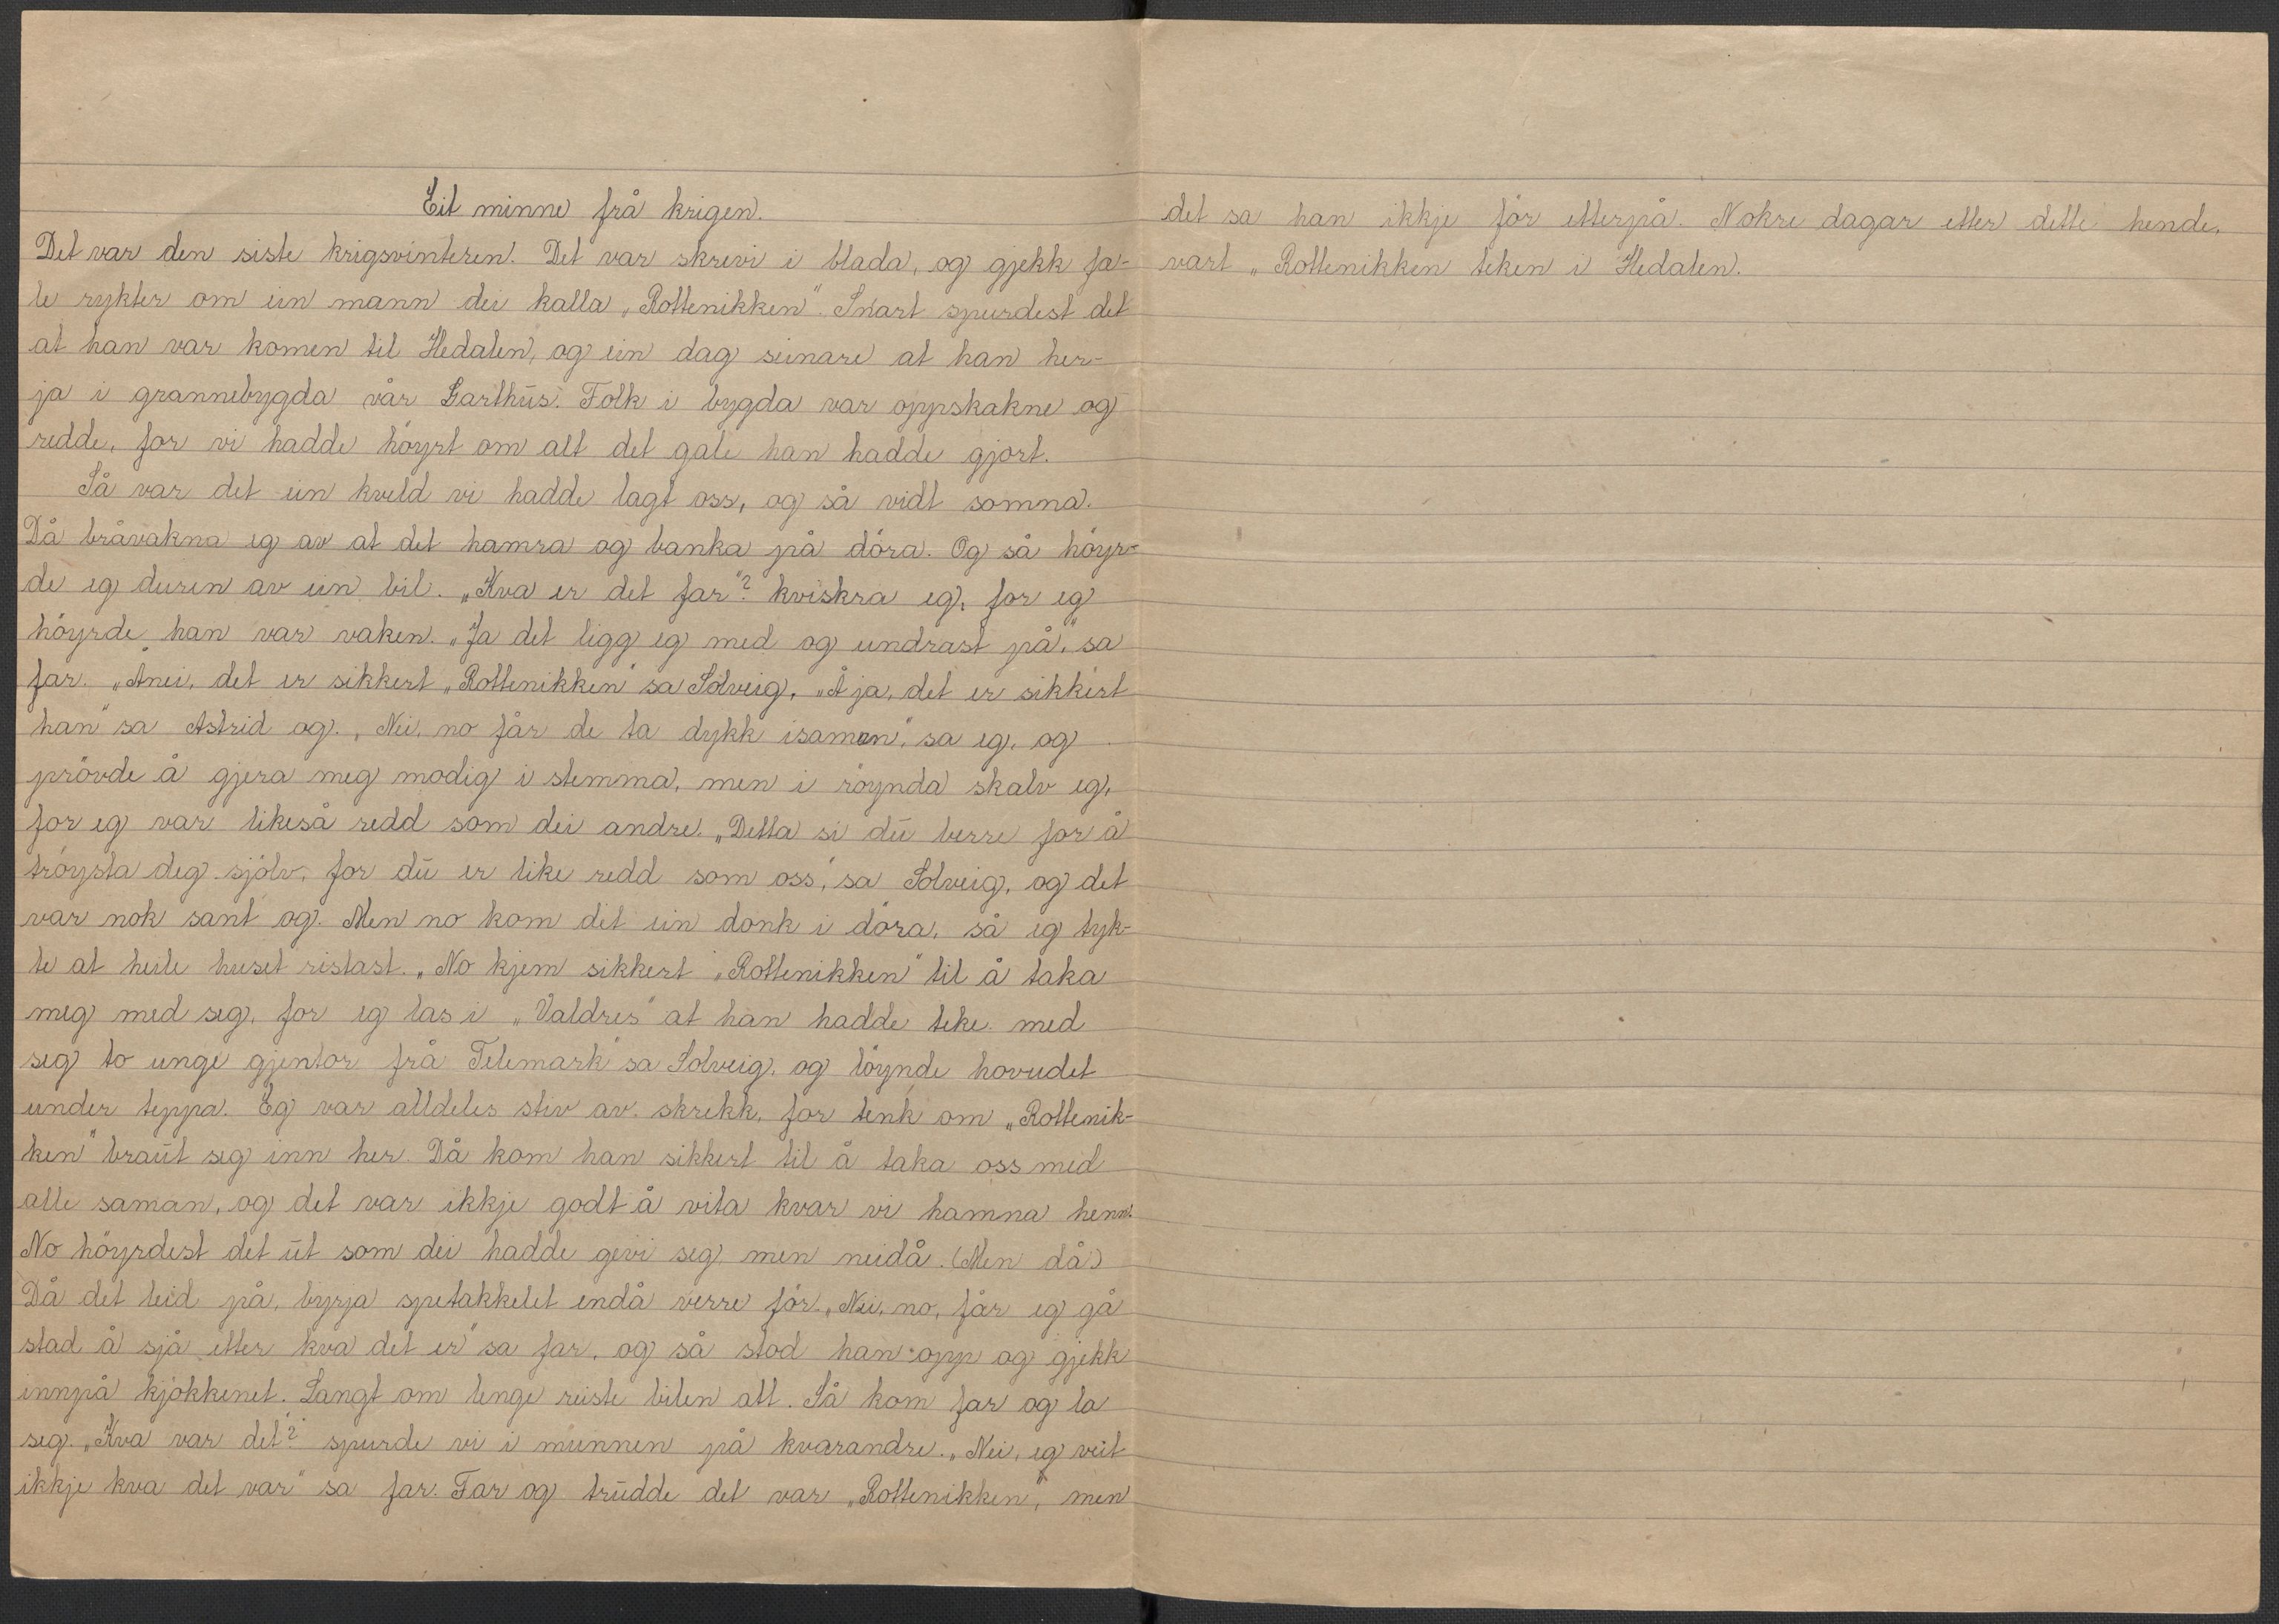 Eit minne frå krigen.
Det var den siste krigsvinteren. Det var skrevi i blada, og gjekk fæ-
le rykter om ein mann dei kalla „Rottenikken". Snart spurdest det
at han var komen til Hedalen, og ein dag seinare at han her-
ja i grannebygda vår Garthus. Folk i bygda var oppskakne og
redde, for vi hadde höyrt om alt det gale han hadde gjort.
Så var det ein kveld vi hadde lagt oss, og så vidt somna.
Då bråvakna eg av at det hamra og banka på döra. Og så höyr-
de eg duren av ein bil. „Kva er det far"? kviskra eg, for eg
höyrde han var vaken. „Ja det ligg eg med og undrast på," sa
far. „Ånei, det er sikkert „Rottenikken" sa Solveig, „Å ja, det er sikkert
han" sa Astrid og. „Nei, no får de ta dykk isamen", sa eg, og
prövde å gjera meg modig i stemma, men i röynda skalv eg,
for eg var likeså redd som dei andre. „Detta si du berre for å
tröysta deg sjölv, for du er like redd som oss", sa Solveig, og det
var nok sant og. Men no kom det ein donk i döra, så eg tyk-
te at heile huset ristast. „No kjem sikkert „Rottenikken" til å taka
meg med seg, for eg las i „Valdres" at han hadde teke med
seg to unge gjentor frå Telemark" sa Solveig, og löynde hovudet
under teppa. Eg var alldeles stiv av skrekk, for tenk om „Rottenik-
ken" braut seg inn her. Då kom han sikkert til å taka oss med
alle saman, og det var ikkje godt å vita kvar vi hamna henn.
No höyrdest det ut som dei hadde gevi seg, men neidå. (Men då)
Då det leid på, byrja spetakkelet endå verre för. „Nei, no, får eg gå
stad å sjå etter kva det er" sa far, og så stod han opp og gjekk
innpå kjökkenet. Langt om lenge reiste bilen att. Så kom far og la
seg. „Kva var det"? spurde vi i munnen på kvarandre. „Nei, eg veit
ikkje kva det var" sa far. Far og trudde det var „Rottenikken", men
det sa han ikkje för etterpå. Nokre dagar etter dette hende,
vart „Rottenikken teken i Hedalen.